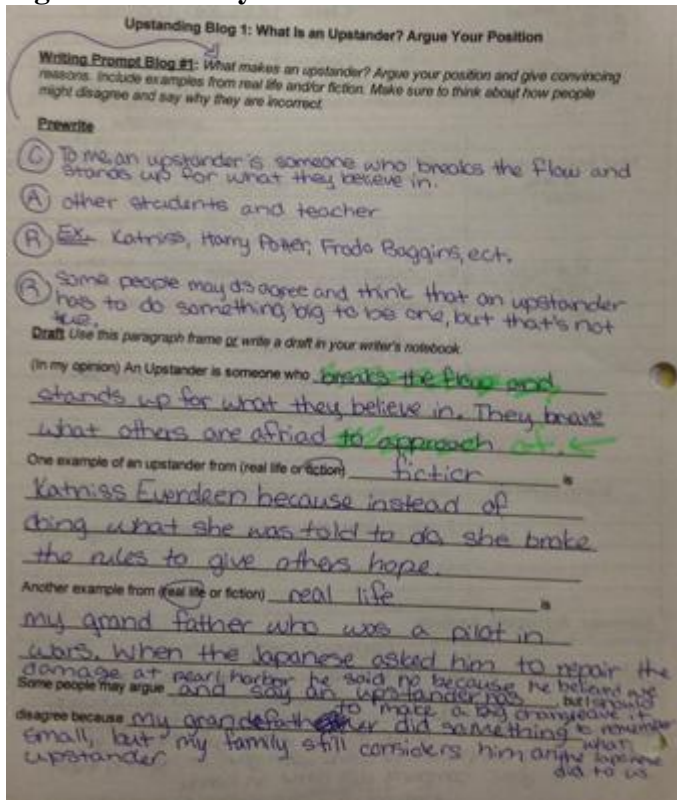 Upstanding Blog 1: What Is an Upstander? Argue Your Position
Writing Prompt Blog #1: What makes an upstander? Argue your position and give convincing
reasons. Include examples from real life and/or fiction. Make sure to think about how people
might disagree and say why they are incorrect.
Prewrite
C To me an upstander is someone who breaks the flow and
stands up for what they believe in.
A other students and teacher
R Ex. Katniss, Harry Potter, Frodo Baggins, ect.
R Some people may disagree and think that an upstander
has to do something big to be one, but that's not
true.
Draft Use this paragraph frame or write a draft in your writer's notebook.
(In my opinion) An Upstander is someone who breaks the flow and
stands up for what they believe in. They brave
what others are afriad to approach at.
One example of an upstander from (real life or fiction) fiction is
Katniss Everdeen because instead of
doing what she was told to do, she broke
the rules to give others hope.
Another example from (real life or fiction) real life is
my grand father who was a pilot in
wars. When the Japanese asked him to repair the
damage at pearl harbor he said no because he believed we
Some people may argue and say an upstander has but I should
to make a big change leave it
disagree because my grandefather did something to remember
small, but my family still considers him an what
upstander the Japanese
did to us